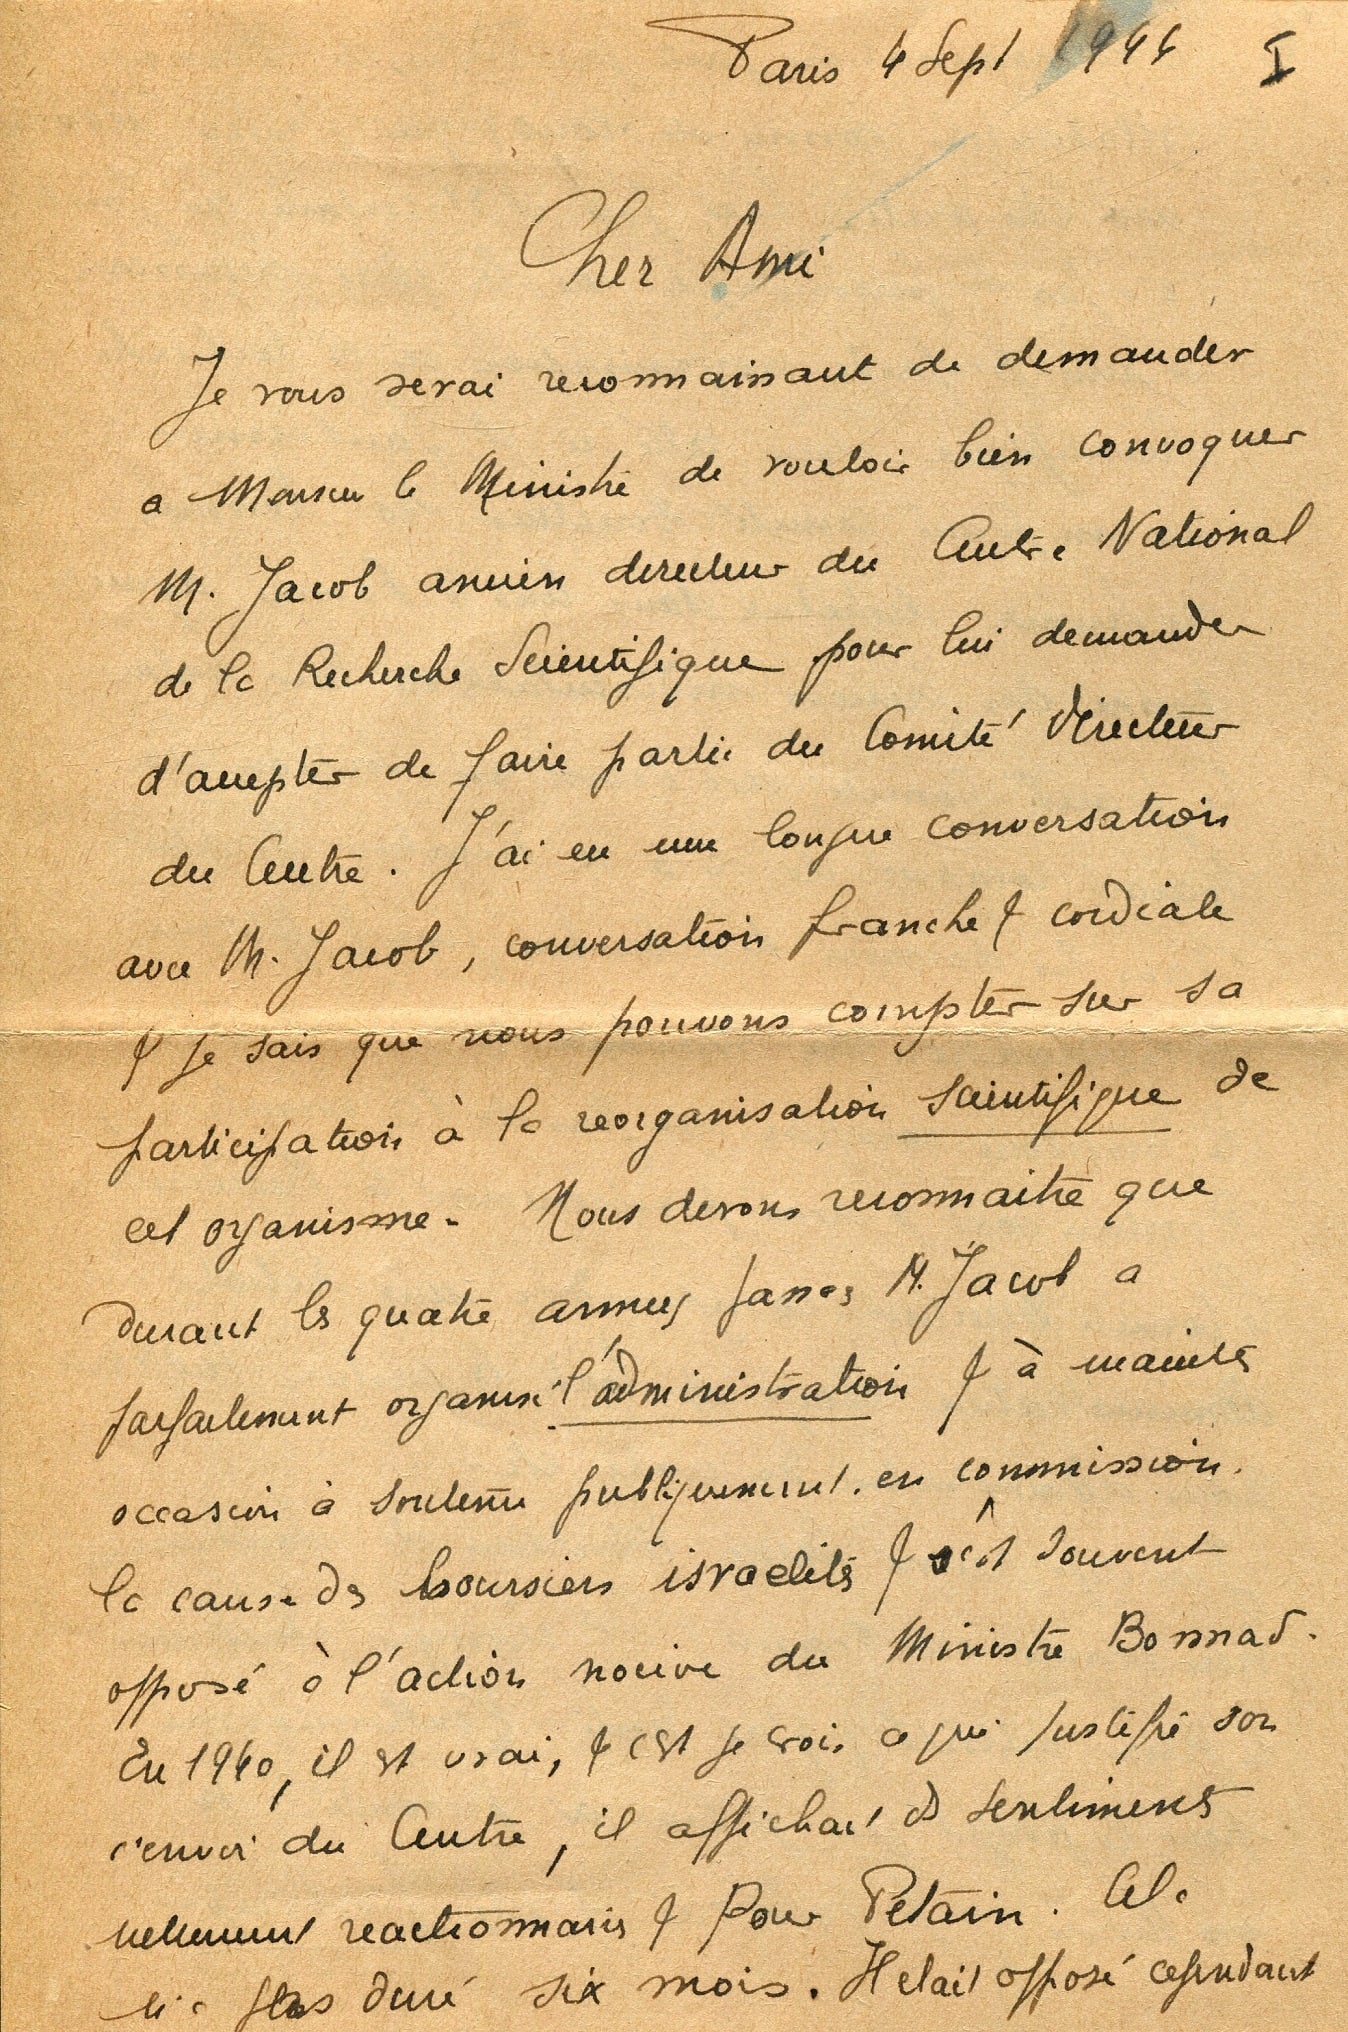 Paris 4 Sept 1944 I
Cher Ami
Je vous serai reconnaissant de demander
a Monsieur le Ministre de vouloir bien convoquer
M. Jacob ancien directeur du Centre National
de la Recherche Scientifique pour lui demander
d'accepter de faire partie du Comité Directeur
du Centre. J'ai eu une longue conversation
avec M. Jacob, conversation franche & cordiale
& je sais que nous pouvons compter sur sa
participation à la reorganisation scientifique de
cet organisme. Nous devons reconnaitre que
durant les quatre annees passees M. Jacob a
parfaitement organisé l'administration & à maintes
occasion a soutenu publiquement en commission
la cause des boursiers israelites & s'est souvent
opposé à l'action nocive du Ministre Bonnad.
En 1940, il est vrai, & c'est je crois ce qui justifie son
renvoi du Centre, il affichait des sentiments
nettement reactionnaires & Pour Pétain. Cela
n'a pas duré six mois. Il etait opposé cependant